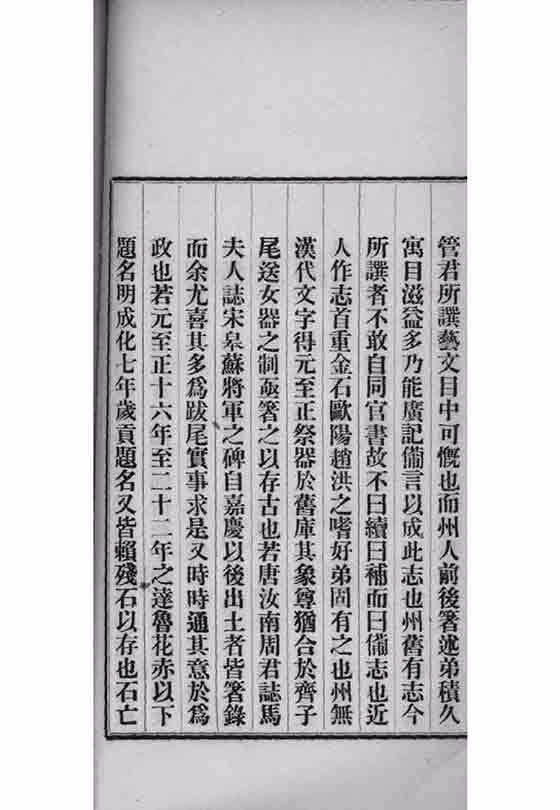 管君所譔藝文目中可慨也而州人前後箸述弟積久
寓目滋益多乃能廣記備言以成此志也州舊有志今
所譔者不敢自同官書故不曰續曰補而曰備志也近
人作志首重金石歐陽趙洪之嗜好弟固有之也州無
漢代文字得元至正祭器於舊庫其象尊猶合於齊子
尾送女器之制亟箸之以存古也若唐汝南周君誌馬
夫人誌宋皋蘇將軍之碑自嘉慶以後出土者皆箸錄
而余尤喜其多為跋尾實事求是又時時通其意於為
政也若元至正十六年至二十二年之達魯花赤以下
題名明成化七年歲貢題名又皆賴殘石以存也石亡